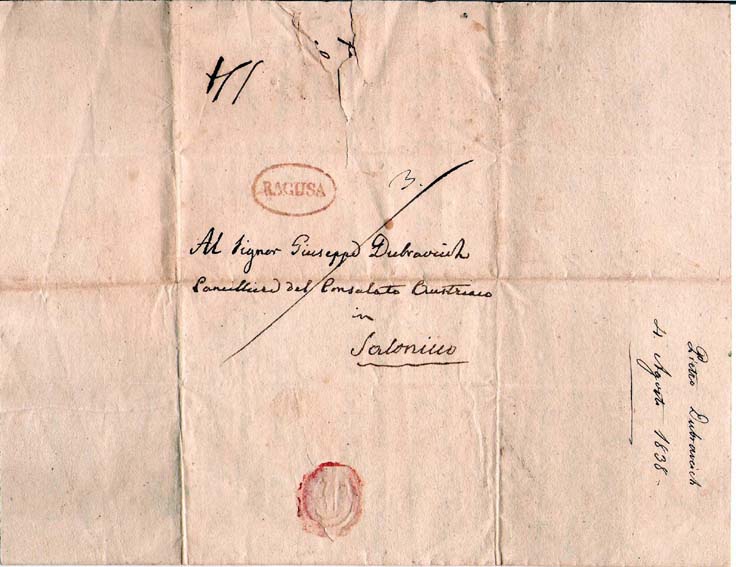 RAGUSA
3.
Al Signor Giuseppe Dubravcich
Cancelliere del Consolato Austriaco
in
Salonicco
Pietro Dubravcich
4. Agosto 1838